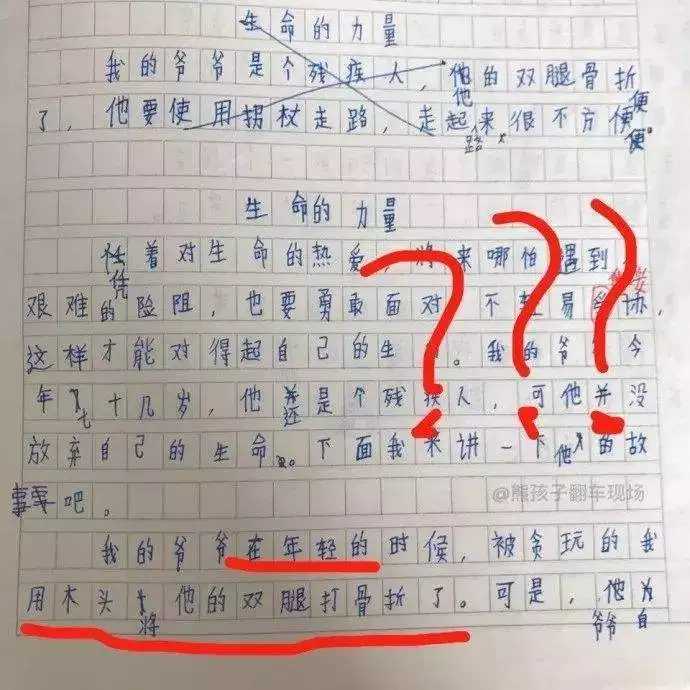 生命的力量
我的爷爷是个残疾人，他的双腿骨折
了，他要使用拐杖走路，走起来很不方便。
生命的力量
凭着对生命的热爱，将来哪怕遇到
艰难的险阻，也要勇敢面对，不轻易妥协，
这样才能对得起自己的生命。我的爷爷今
年七十几岁，他还是个残疾人，可他并没
放弃自己的生命。下面我来讲一下他的故
事吧。
@熊孩子翻车现场
我的爷爷在年轻的时候，被贪玩的我
用木头将他的双腿打骨折了。可是，爷爷为
自